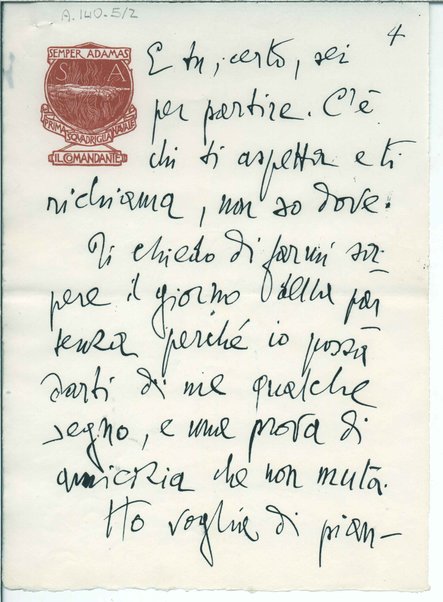 A.140.5/2
4
SEMPER ADAMAS
S A
PRIMA SQUADRIGLIA NAVALE
IL COMANDANTE
E tu, certo, sei
per partire. C'è
chi ti aspetta e ti
richiama, non so dove.
Ti chiedo di farmi sa-
pere il giorno della par
tenza perché io possa
darti di me qualche
segno, e una prova di
amicizia che non muta.
Ho voglia di pian-